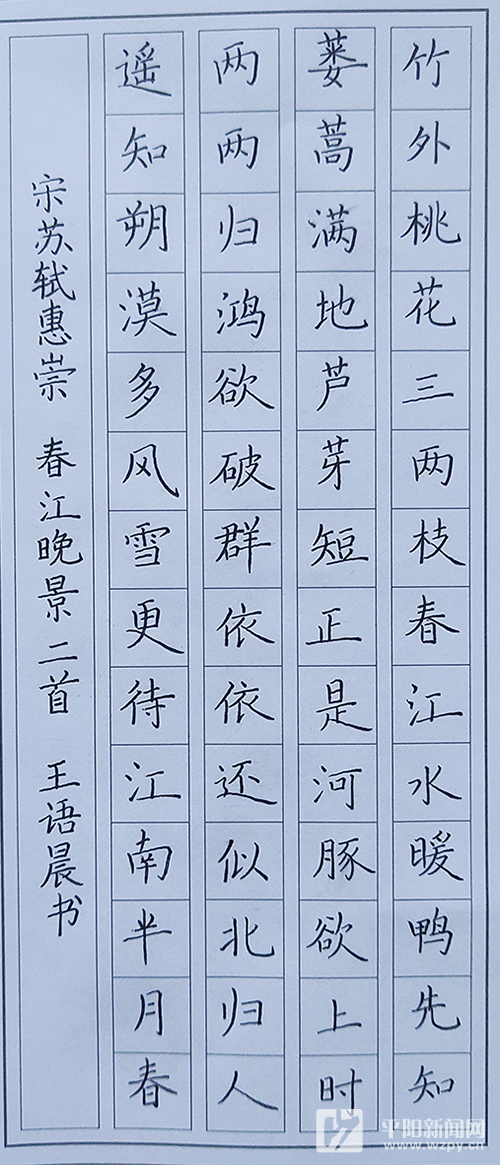 竹外桃花三两枝春江水暖鸭先知
蒌蒿满地芦芽短正是河豚欲上时
两两归鸿欲破群依依还似北归人
遥知朔漠多风雪更待江南半月春
宋苏轼惠崇 春江晚景二首 王语晨书
平阳新闻网
www.wzpy.cn